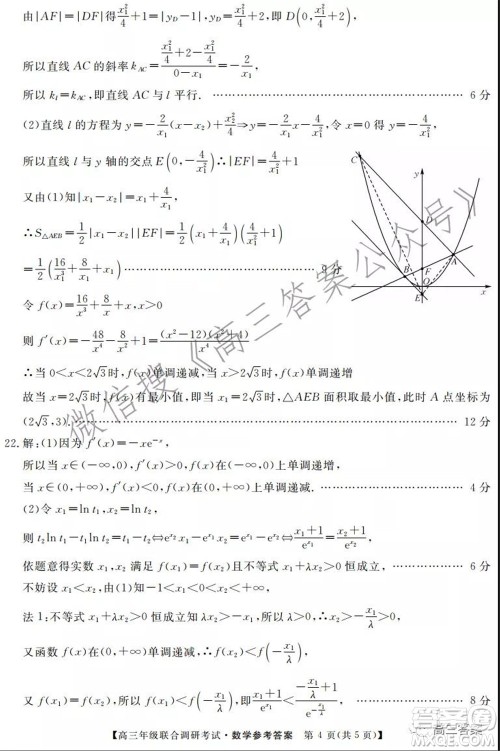 由|AF|=|DF|得x₁²/4+1=|y_D-1|,y_D=x₁²/4+2,即 D(0,x₁²/4+2),
所以直线 AC 的斜率 k_AC=(x₁²/4+2-x₁²/4)/(0-x₁)=-2/x₁,
所以 k_l=k_AC,即直线 AC 与 l 平行. …… 6 分
(2)直线 l 的方程为 y=-2/x₁(x-x₂)+x₂²/4⇒y=-2/x₁x-4/x₁²,令 x=0 得 y=-4/x₁²,
所以直线 l 与 y 轴的交点 E(0,-4/x₁²)∴|EF|=4/x₁²+1
又由(1)知|x₁-x₂|=x₁+4/x₁
∴S△AEB=1/2|x₁-x₂||EF|=1/2(x₁+4/x₁)(4/x₁²+1)
=1/2(16/x₁³+8/x₁+x₁) …… 9 分
令 f(x)=16/x³+8/x+x,x>0
则 f′(x)=-48/x⁴-8/x²+1=(x²-12)(x²+4)/x⁴
∴当 0<x<2√3时,f(x)单调递减,当 x>2√3时,f(x)单调递增
故当 x=2√3时,f(x)有最小值,即当 x₁=2√3时,△AEB 面积取最小值,此时 A 点坐标为
(2√3,3). …… 12 分
y
C
D
F
A
B
O
x
E
22.解:(1)因为 f′(x)=-xe⁻ˣ,
所以当 x∈(-∞,0),f′(x)>0,f(x)在(-∞,0)上单调递增,
当 x∈(0,+∞),f′(x)<0,f(x)在(0,+∞)上单调递减. …… 4 分
(2)令 x₁=ln t₁,x₂=ln t₂,
则 t₂ln t₁-t₁ln t₂=t₁-t₂⇔e^x₂ x₁-e^x₁ x₂=e^x₁-e^x₂⇔(x₁+1)/e^x₁=(x₂+1)/e^x₂,
依题意得实数 x₁,x₂ 满足 f(x₁)=f(x₂)且不等式 x₁+λx₂>0 恒成立, …… 6 分
不妨设 x₁<x₂,由(1)知-1<x₁<0<x₂<+∞,
法 1:不等式 x₁+λx₂>0 恒成立知 λx₂>-x₁,所以 λ>0,∴x₂>-x₁/λ,
又函数 f(x)在(0,+∞)单调递减,∴f(x₂)<f(-x₁/λ),
又 f(x₁)=f(x₂),所以 f(x₁)<f(-x₁/λ),即(x₁+1)/e^x₁<(-x₁/λ+1)/e^(-x₁/λ), …… 8 分
【高三年级联合调研考试·数学参考答案 第 4 页(共 5 页)】
微信搜《高三答案公众号》
高三答案